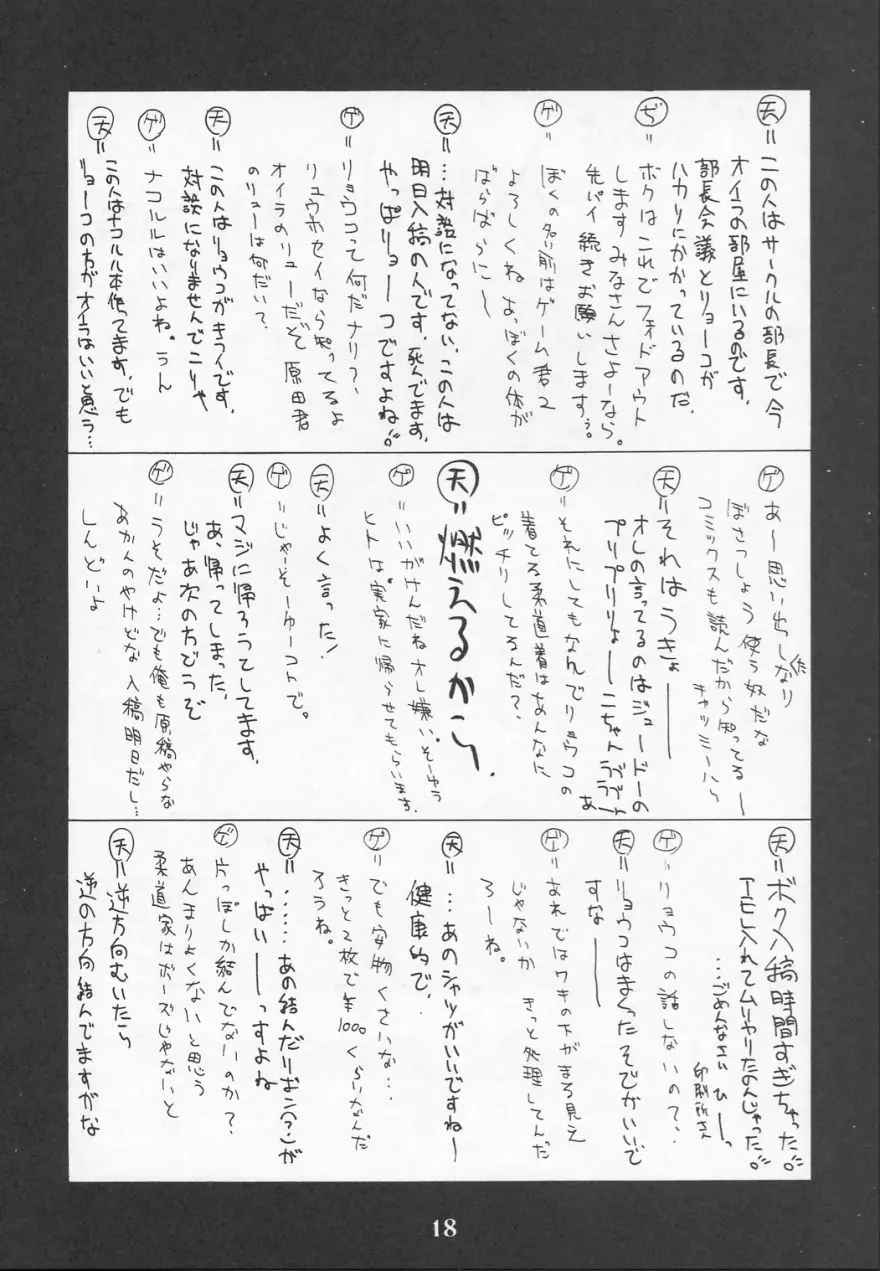 天=この人はサークルの部長で今
オイラの部屋にいるのです。
部長会議とリョーコが
ハカリにかかっているのだ。
ぢ=ボクはこれでフェイドアウト
します みなさんさよーなら。
先パイ続きお願いしますぅ。
ゲ=ぼくの名前はゲーム君2
よろしくね あっぼくの体が
ばらばらに〜
天=…対談になってない、この人は
明日入稿の人です、死んでます。
やっぱリョーコですよね。
ゲ=リョウコって何だナリ?、
リュウホセイなら知ってるよ
オイラのリューだぞ 原田君
のリューは何だい?
天=この人はリョウコがキライです。
対談になりませんでこりゃ
ゲ=ナコルルはいいよね。うん
天=この人はナコルル本作ってます、でも
リョーコの方がオイラはいいと思う…
ゲ=あー思い出しなり
(た)
ぼさつしょう使う奴だな
コミックスも読んだから知ってるー
キャッミーハら
天=それはうきょ―――
オレの言ってるのはジュードーの
プリプリリょーこちゃんララララ
あ
ゲ=それにしてもなんでリョウコの
着てる柔道着はあんなに
ピッチリしてるんだ?、
天=燃えるから、
ゲ=いいがけんだねオレ嫌い。そーゆう
ヒトは。実家に帰らせてもらいます、
天=よく言った!
ゲ=じゃーそーゆーコトで。
天=マジに帰ろうてしてます、
あ、帰ってしまった、
じゃあ次の方どうぞ
ゲ=うそだよ…でも俺も原稿やらな
あかんのやけどな 入稿明日だし…
しんどいよ
天=ボク入稿時間すぎちゃった。
TEL入れてムリヤリたのんじゃった。
…ごめんなさい ひーっ
印刷所さん
ゲ=リョウコの話しないので?、
天=リョウコはまくったそでがいいで
すな――
ゲ=あれではワキの下がまる見え
じゃないか きっと処理してんだ
ろーね。
天=…あのシャツがいいですね〜
健康的で、
ゲ=でも安物くさいな…
きっと2枚で¥1000くらいなんだ
ろうね。
天=……あの結んだリボン(?)が
やっぱい――っすよね
ゲ=片っぽしか結んでないのか?、
あんまりよくないと思う
柔道家はボーズじゃないと
天=逆方向むいたら
逆の方向結んでますがな
18